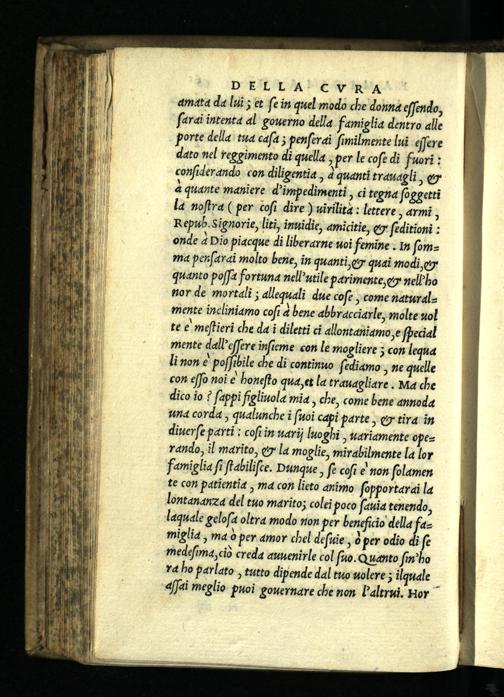 DELLA CVRA
amata da lui; et se in quel modo che donna essendo,
sarai intenta al governo della famiglia dentro alle
porte della tua casa; penserai similmente lui essere
dato nel reggimento di quella, per le cose di fuori:
considerando con diligentia, à quanti travagli, &
à quante maniere d'impedimenti, ci tegna soggetti
la nostra (per cosi dire) uirilità: lettere, armi,
Repub. Signorie, liti, inuidie, amicitie, & seditioni:
onde à Dio piacque di liberarne uoi femine. In som=
ma pensarai molto bene, in quanti, & quai modi, &
quanto possa fortuna nell'utile parimente, & nell'ho
nor de mortali; allequali due cose, come natural=
mente incliniamo cosi à bene abbracciarle, molte vol
te è mestieri che da i diletti ci allontaniamo, e spetial
mente dall'essere insieme con le mogliere; con lequa
li non è possibile che di continuo sediamo, ne quelle
con esso noi è honesto qua, et la trauagliare. Ma che
dico io? sappi figliuola mia, che, come bene annoda
una corda, qualunche i suoi capi parte, & tira in
diuerse parti: cosi in uarij luoghi, uariamente ope=
rando, il marito, & la moglie, mirabilmente la lor
famiglia si stabilisce. Dunque, se cosi è non solamen
te con patientia, ma con lieto animo sopportarai la
lontananza del tuo marito; colei poco sauia tenendo,
laquale gelosa oltra modo non per beneficio della fa=
miglia, ma ò per amor chel desuie, ò per odio di se
medesima, ciò creda auuenirle col suo. Quanto sin'ho
ra ho parlato, tutto dipende dal tuo uolere; ilquale
assai meglio puoi governare che non l'altrui. Hor